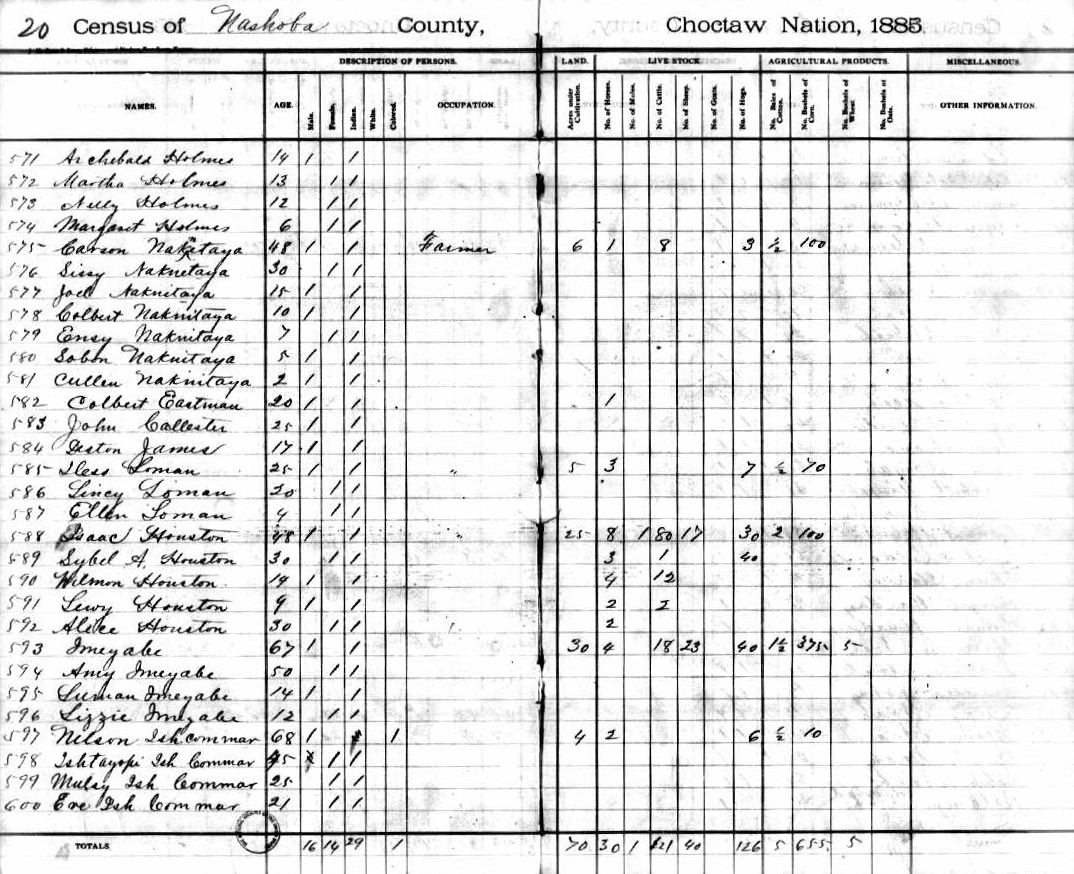 20 Census of Nashoba County, Choctaw Nation, 1885.
DESCRIPTION OF PERSONS. LAND. LIVE STOCK. AGRICULTURAL PRODUCTS. MISCELLANEOUS.
NAMES. AGE. Male. Female. Indian. White. Colored. OCCUPATION. Acres under Cultivation. No. of Horses. No. of Mules. No. of Cattle. No. of Sheep. No. of Goats. No. of Hogs. No. Bales of Cotton. No. Bushels of Corn. No. Bushels of Wheat. No. Bushels of Oats. OTHER INFORMATION.
571 Archebald Holmes 14 1 1
572 Martha Holmes 13 1 1
573 Nelly Holmes 12 1 1
574 Margaret Holmes 6 1 1
575 Carson 48 1 1 Farmer 6 1 8 3 1/2 100
576 Sissy Naknetaya 30 1 1
577 Joel Naknitaya 15 1 1
578 Colbert Naknitaya 10 1 1
579 Ensy Naknitaya 7 1 1
580 Sobon Naknitaya 5 1 1
581 Cullen Naknitaya 2 1 1
582 Colbert Eastman 20 1 1 1
583 John Callester 25 1 1
584 Deston James 17 1 1
585 Iless Loman 25 1 1 " 5 3 7 1/2 70
586 Lincy Loman 20 1 1
587 Ellen Loman 4 1 1
588 Isaac Houston 48 1 1 " 25 8 1 80 17 30 2 100
589 Sybel A. Houston 30 1 1 3 1 40
590 Wilmon Houston 14 1 1 4 12
591 Lewy Houston 9 1 1 2 2
592 Alice Houston 30 1 1 2
593 Imeyabe 67 1 1 30 4 18 23 40 1 1/2 375 5
594 Amy Imeyabe 50 1 1
595 Luman Imeyabe 14 1 1
596 Lizzie Imeyabe 12 1 1
597 Nelson Ish commar 68 1 1 4 2 6 1/2 10
598 Ishtayopi Ish Commar 45 1 1
599 Mulsy Ish Commar 25 1 1
600 Eve Ish Commar 21 1 1
TOTALS 16 14 29 1 70 30 1 121 40 126 5 655 5